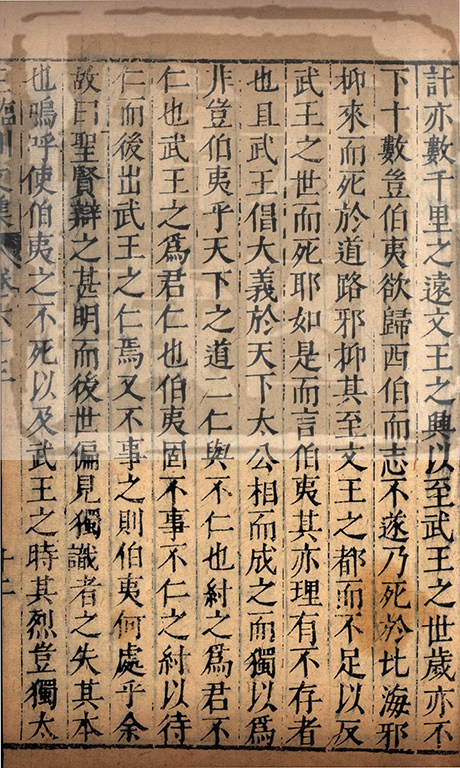 計亦數千里之遠文王之興以至武王之世歲亦不
下十數豈伯夷欲歸西伯而志不遂乃死於北海邪
抑來而死於道路邪抑其至文王之都而不足以及
武王之世而死耶如是而言伯夷其亦理有不存者
也且武王倡大義於天下太公相而成之而獨以爲
非豈伯夷乎天下之道二仁與不仁也紂之爲君不
仁也武王之爲君仁也伯夷固不事不仁之紂以待
仁而後出武王之仁焉又不事之則伯夷何處乎余
故曰聖賢辯之甚明而後世偏見獨識者之失其本
也嗚呼使伯夷之不死以及武王之時其烈豈獨太
王臨川文集 卷六十三 十二